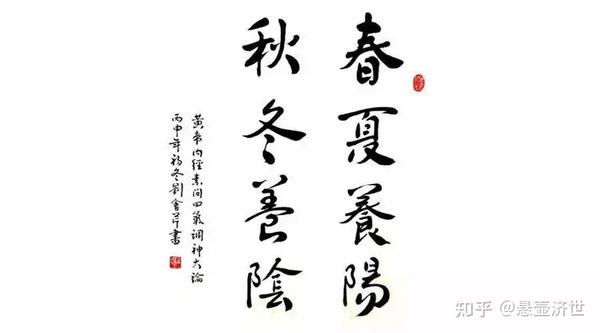 春夏養陽
秋冬養陰
黄帝内經素问四氣调神大論
丙申年初冬劉會芹書
知乎 @悬壶济世